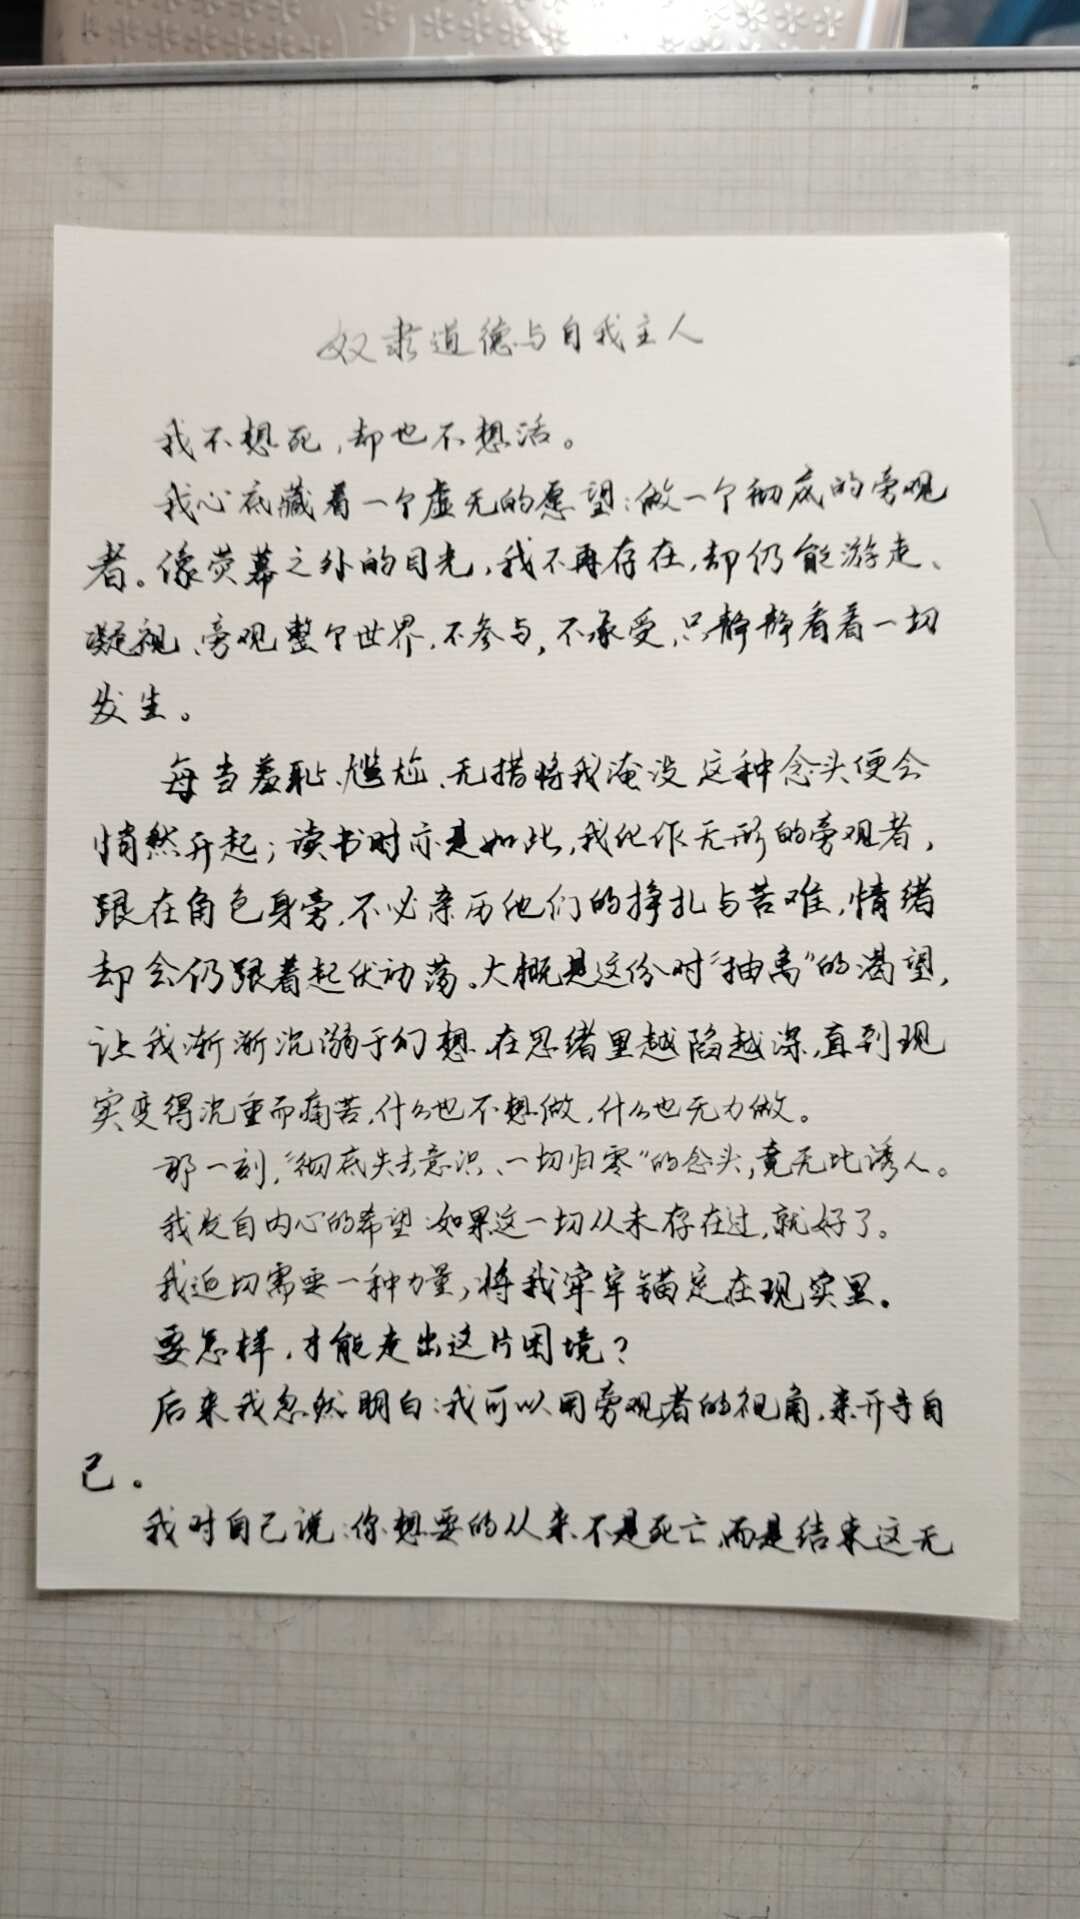 奴隶道德与自我主人
我不想死,却也不想活。
我心底藏着一个虚无的愿望:做一个彻底的旁观
者。像荧幕之外的目光,我不再存在,却仍能游走、
凝视、旁观整个世界,不参与,不承受,只静静看着一切
发生。
每当羞耻、尴尬、无措将我淹没,这种念头便会
悄然升起;读书时亦是如此,我化作无形的旁观者,
跟在角色身旁,不必亲历他们的挣扎与苦难,情绪
却会仍跟着起伏动荡。大概是这份对“抽离”的渴望,
让我渐渐沉溺于幻想,在思绪里越陷越深,直到现
实变得沉重而痛苦,什么也不想做,什么也无力做。
那一刻,“彻底失去意识、一切归零”的念头,竟无比诱人。
我发自内心的希望:如果这一切从未存在过,就好了。
我迫切需要一种力量,将我牢牢锚定在现实里。
要怎样,才能走出这片困境?
后来我忽然明白:我可以用旁观者的视角,来开导自
己。
我对自己说:你想要的从来不是死亡,而是结束这无